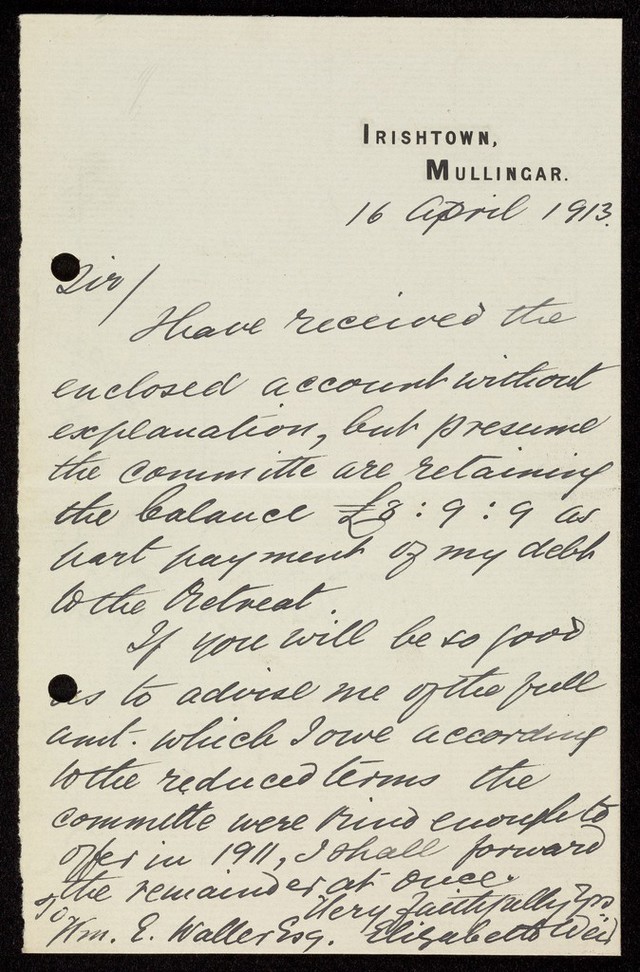 IRISHTOWN,
MULLINGAR.
16 April 1913.
Sir/
Have received the
enclosed account without
explanation, but presume
the committe are retaining
the balance £3:9:9 as
part payment of my debt
to the Retreat.
If you will be so good
as to advise me of the full
amt. which I owe according
to the reduced terms the
committe were kind enough to
offer in 1911, I shall forward
the remainder at once.
Very faithfully Yrs
To
Wm. E. Waller Esq. Elizabeth